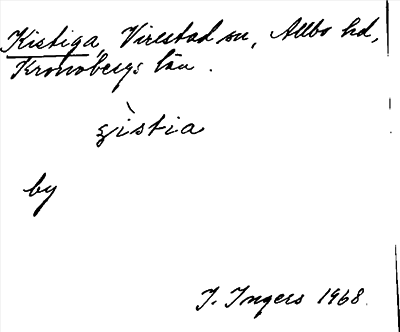 Kistiga, Virestad sn, Allbo hd,
Kronobergs län.
ʂìstia
by
I. Ingers 1968.